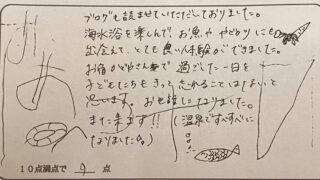 ブログも読ませていただいておりました。
海水浴を楽しんで、お魚や やどかりにも
出会えて、とても良い体験ができました。
お宿かどや さんで 過ごした一日を
子どもたちもきっと忘れることはないと
思います。お世話になりました。
また来ます!! (温泉ですべすべに
なりました。)
10点満点で 9 点